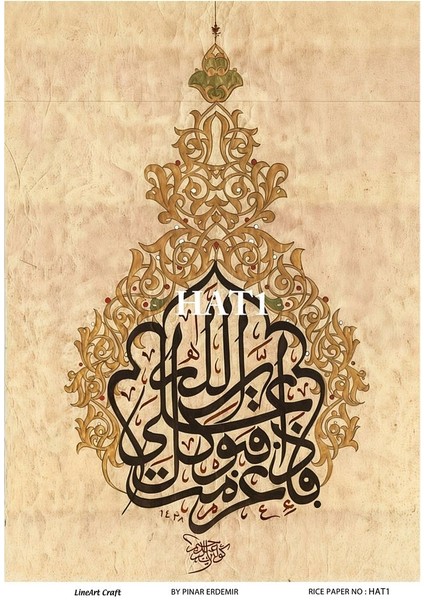 HAT1
فإذا عزمت فتوكل على الله
١٤٢٨
LineArt Craft BY PINAR ERDEMIR RICE PAPER NO : HAT1